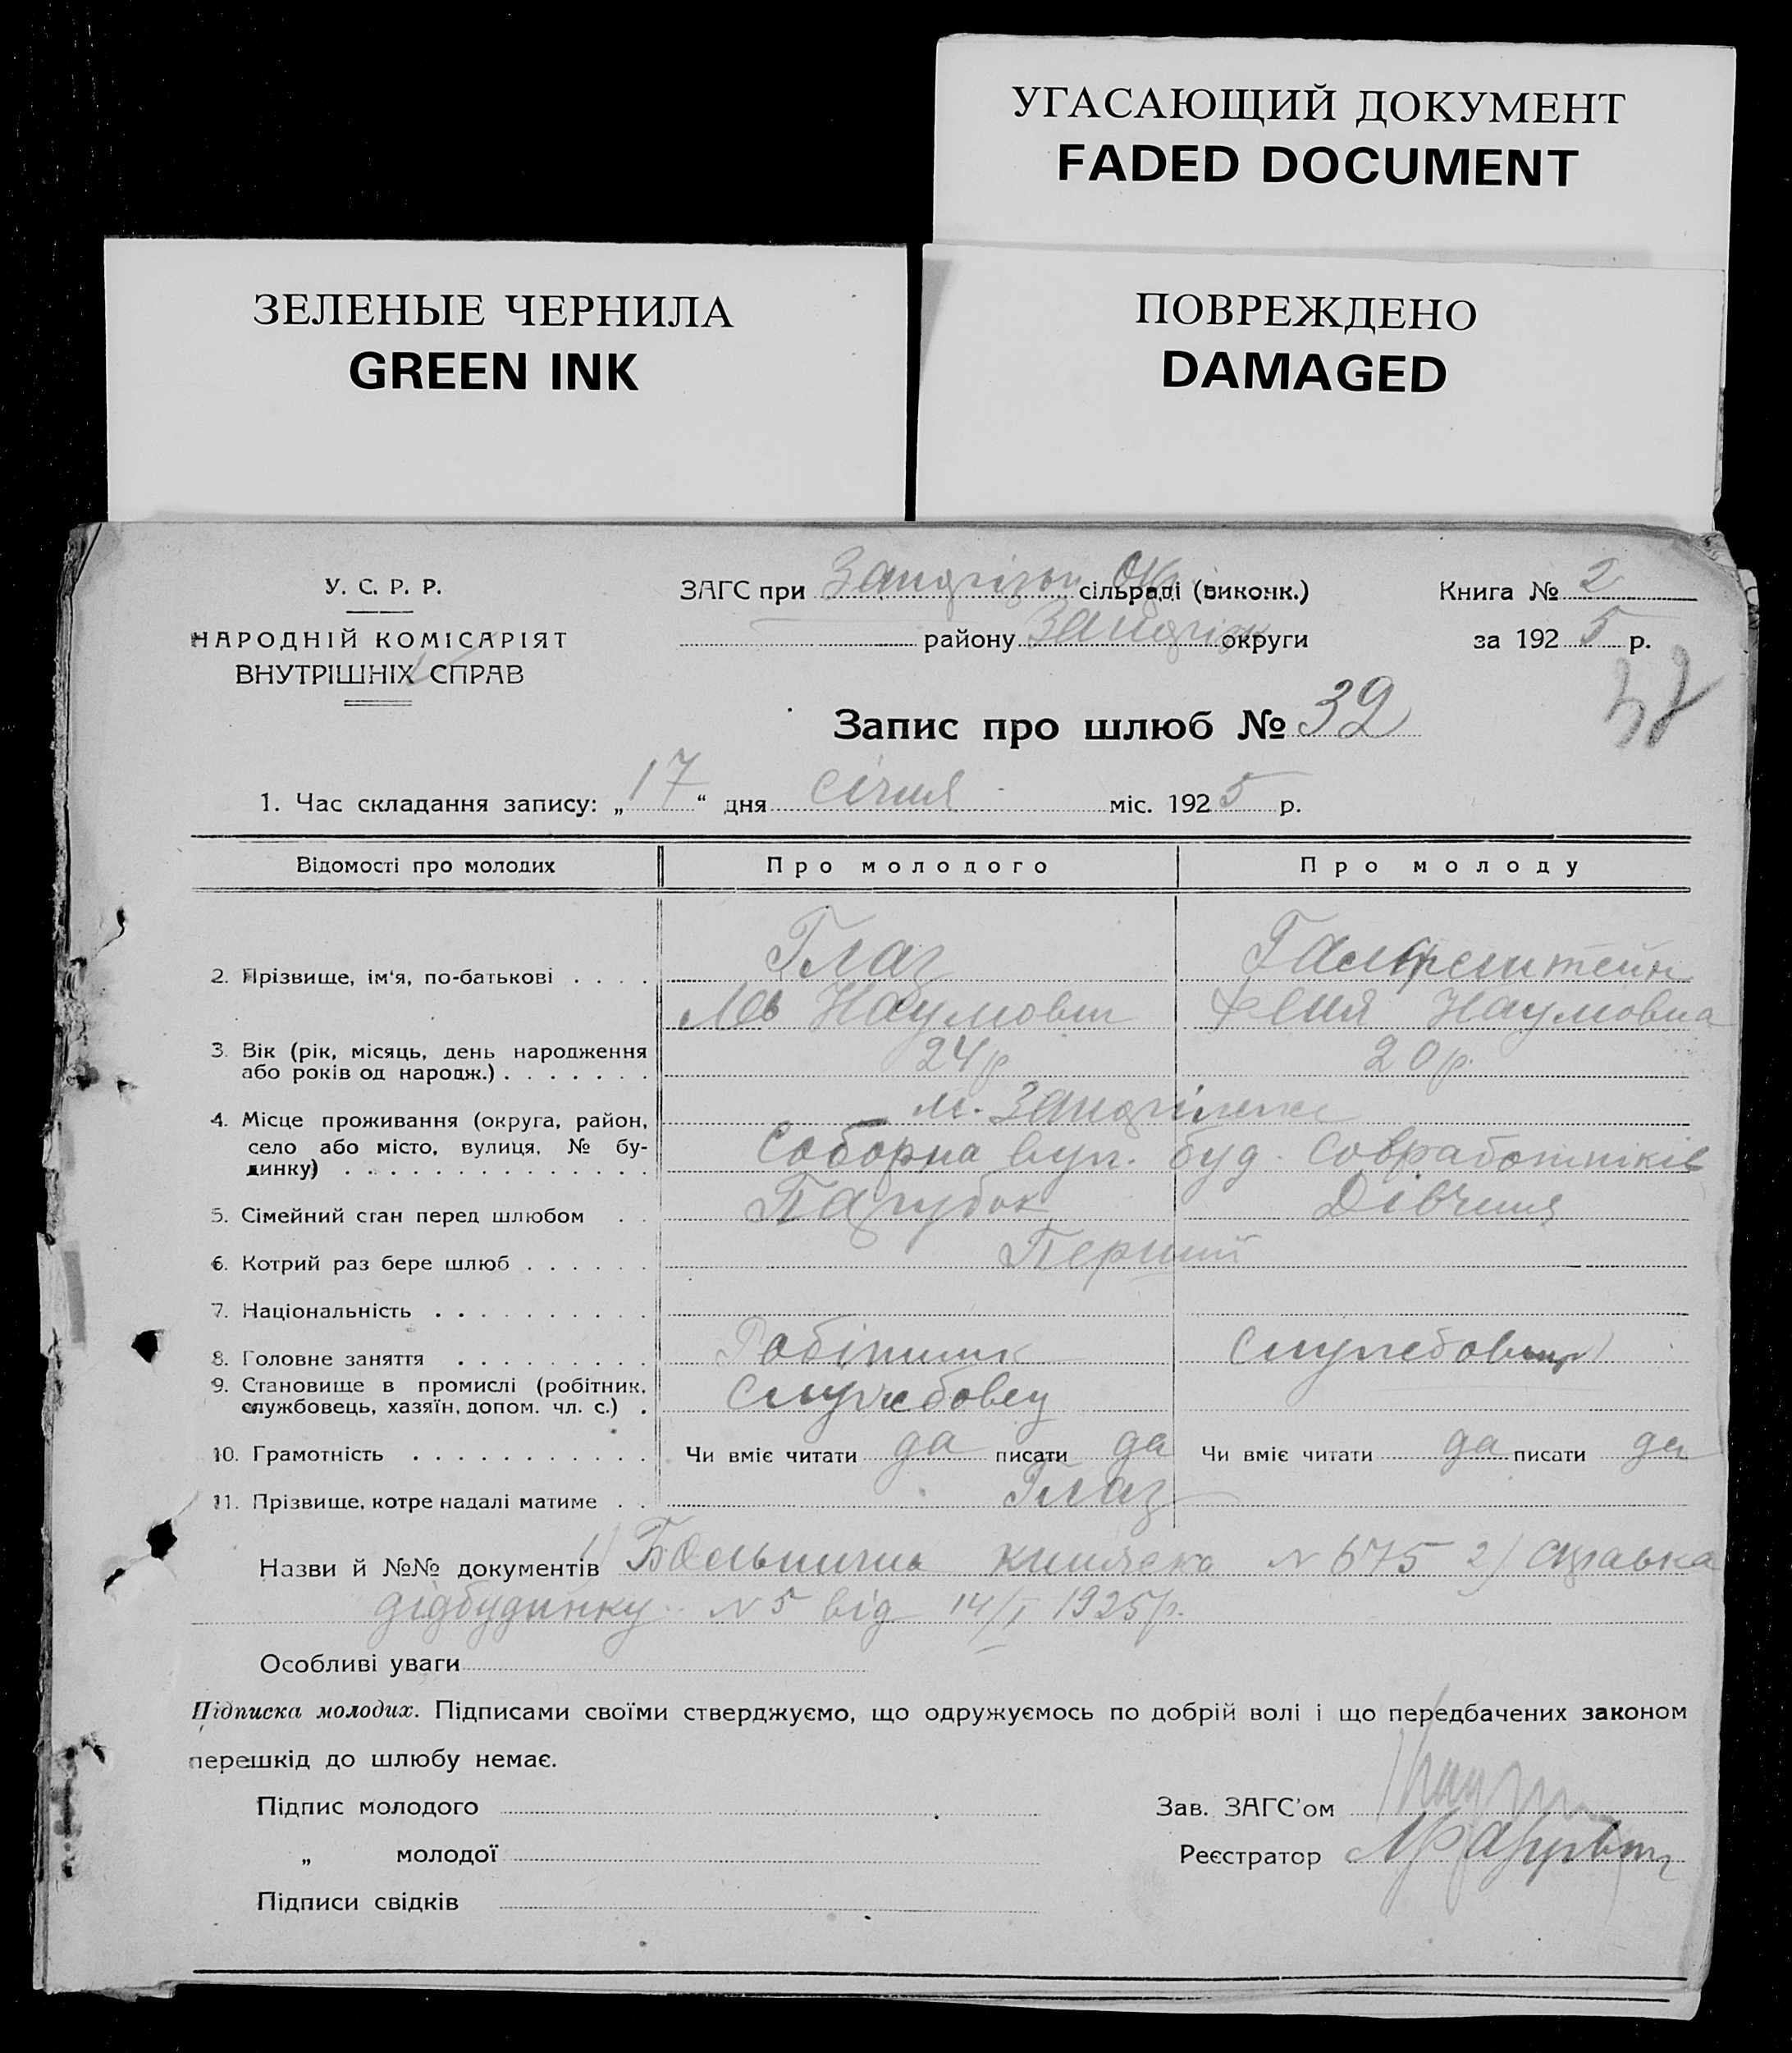 УГАСАЮЩИЙ ДОКУМЕНТ
FADED DOCUMENT
ЗЕЛЕНЫЕ ЧЕРНИЛА
GREEN INK
ПОВРЕЖДЕНО
DAMAGED
У. С. Р. Р.
НАРОДНІЙ КОМІСАРІЯТ
ВНУТРІШНІХ СПРАВ
ЗАГС при сільраді (виконк.)
району округи
Книга № 2
за 1925 р.
Запис про шлюб № 32
1. Час складання запису: „17“ дня січня міс. 1925 р.
Відомості про молодих Про молодого Про молоду
2. Прізвище, ім'я, по-батькові . . . .
Глаз
Лев Наумович Феня Наумовна
3. Вік (рік, місяць, день народження
або років од народж.) . . . . . . . 24 р 20 р.
4. Місце проживання (округа, район, м.
село або місто, вулиця, № бу-
динку) . . . . . . . . . . . . . Соборна вул. буд. Совработників
5. Сімейний стан перед шлюбом . . Парубок Дівчина
6. Котрий раз бере шлюб . . . . . . Перший
7. Національність . . . . . . . . . .
8. Головне заняття . . . . . . . . . Робітник
9. Становище в промислі (робітник,
службовець, хазяїн, допом. чл. с.) . Служебовец
10. Грамотність . . . . . . . . . . . Чи вміє читати да писати да Чи вміє читати да писати да
11. Прізвище, котре надалі матиме . . Глаз
Назви й №№ документів 1) книжка N 675 2) справка
дідбудинку N 5 від 14/I 1925 р.
Особливі уваги
Підписка молодих. Підписами своїми стверджуємо, що одружуємось по добрій волі і що передбачених законом
перешкід до шлюбу немає.
Підпис молодого
„ молодої
Підписи свідків
Зав. ЗАГС'ом
Реєстратор